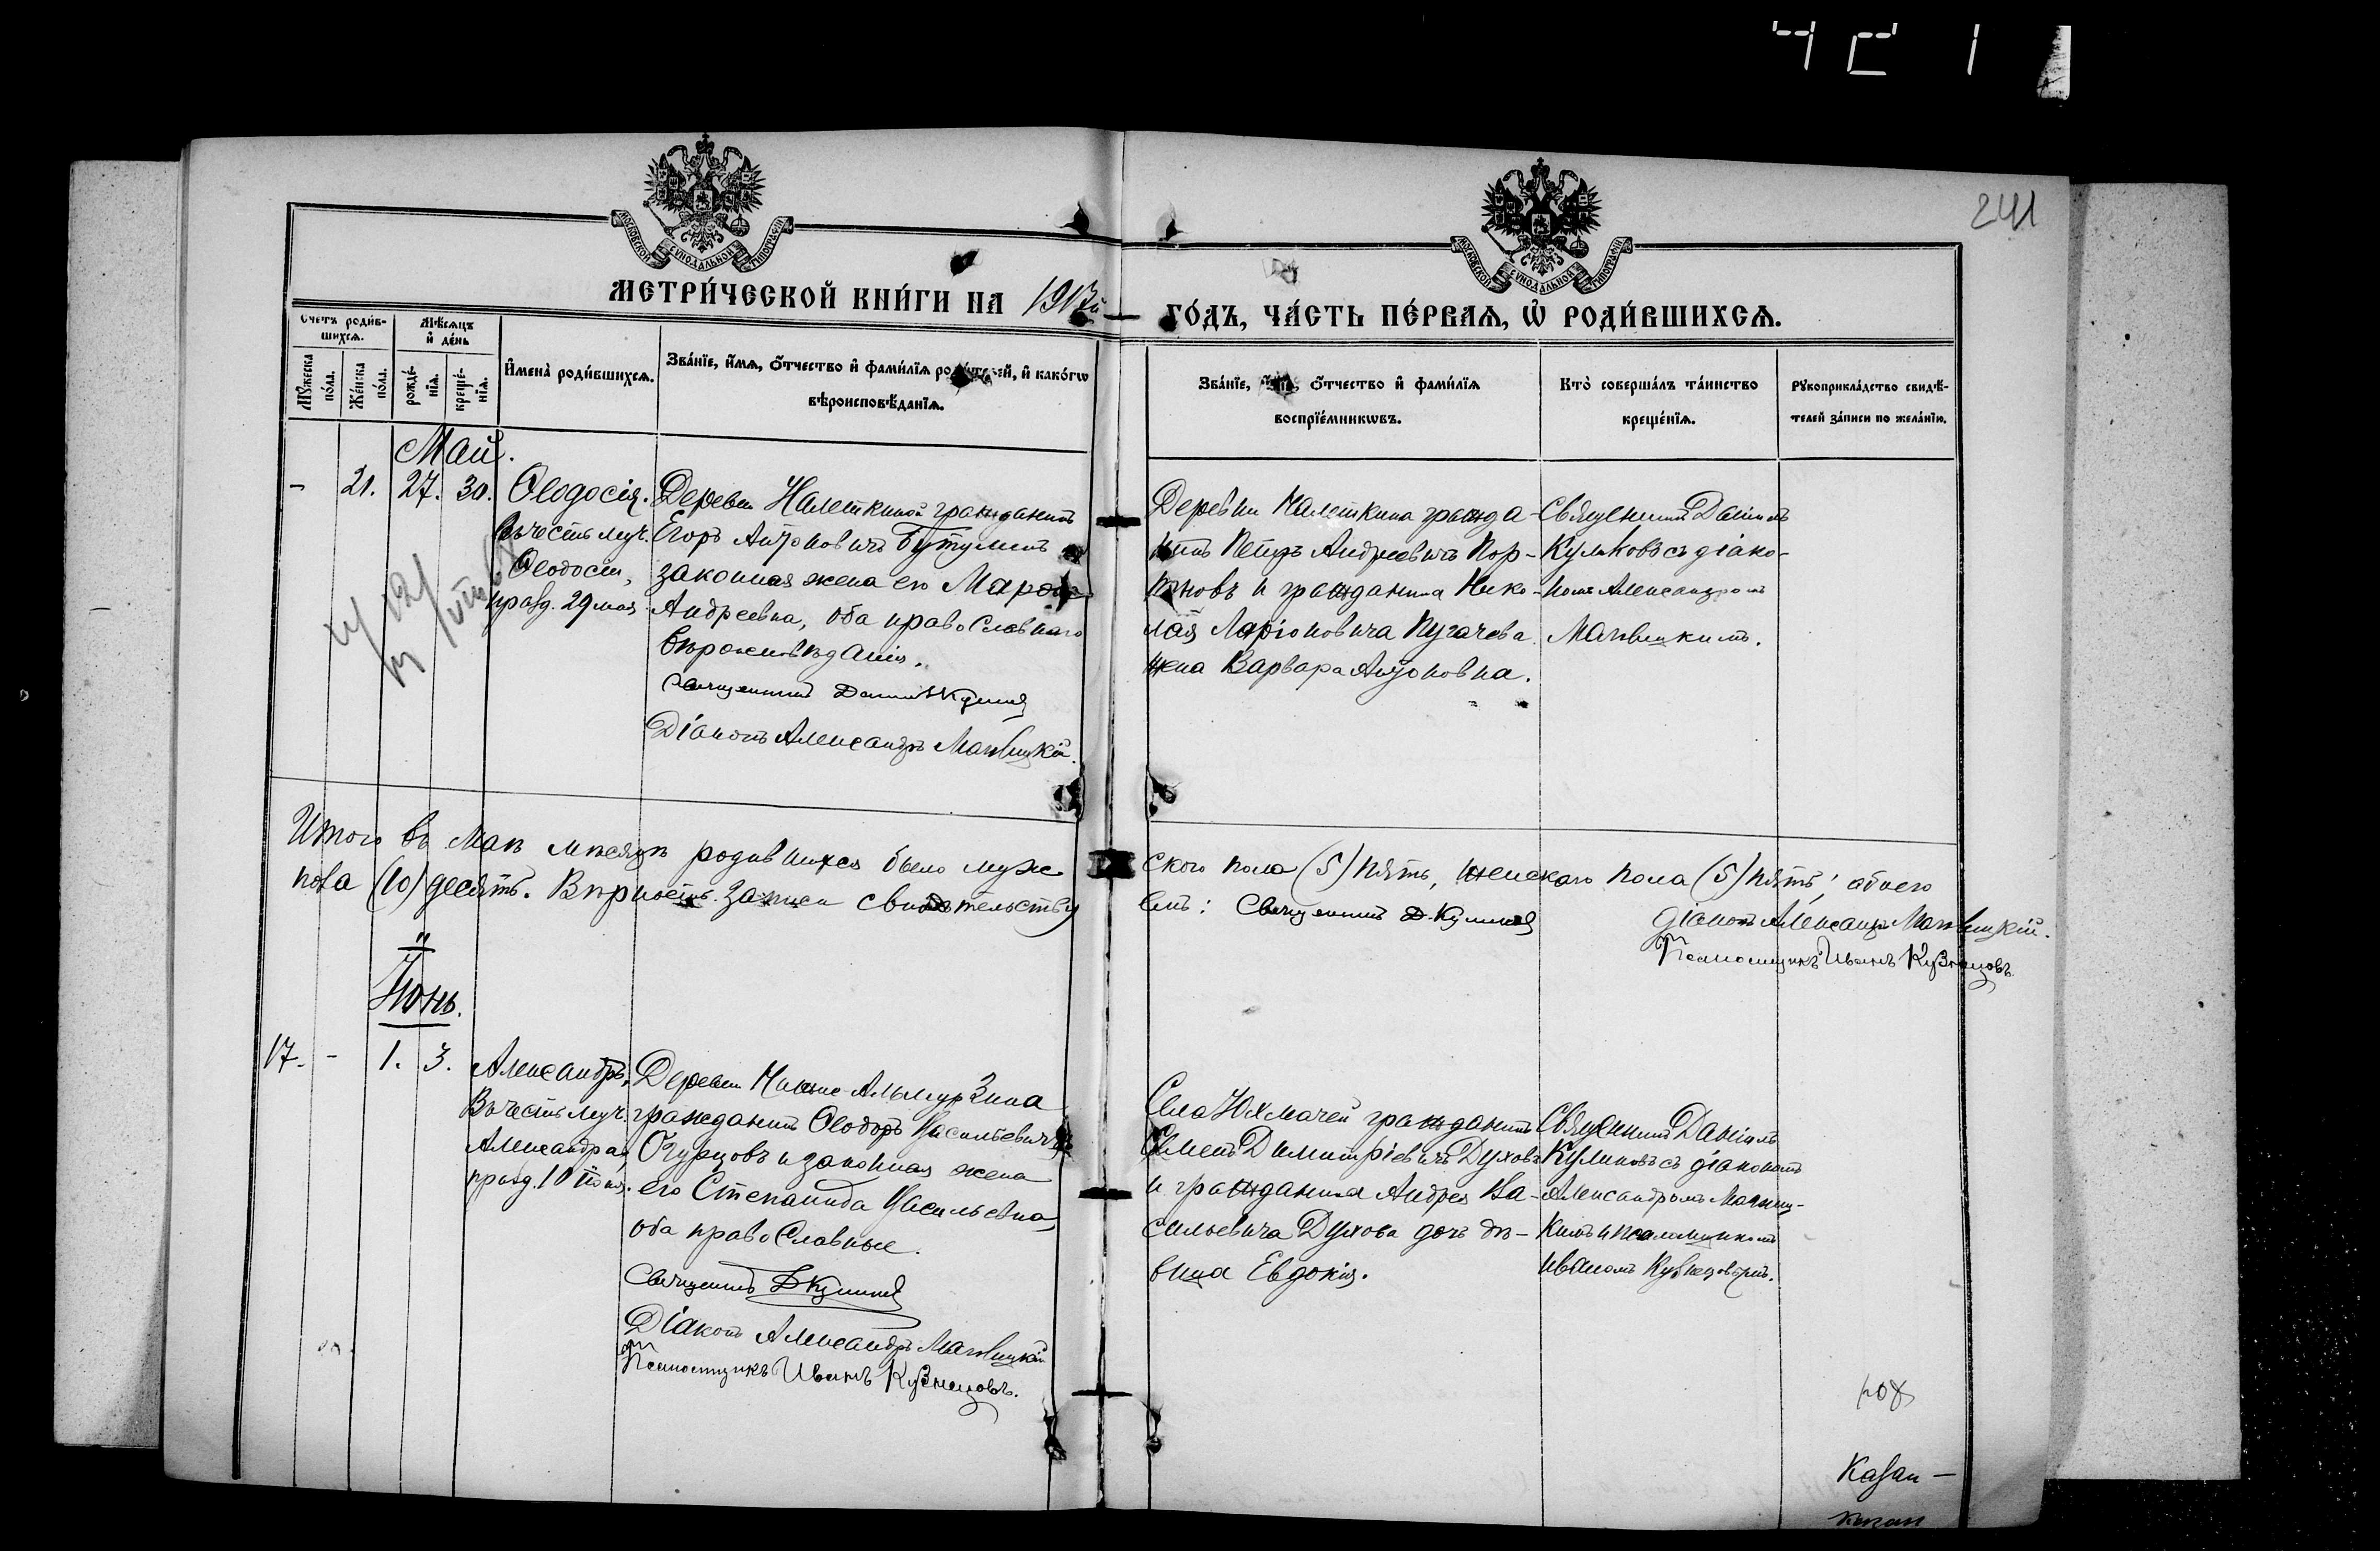 241
МОСКОВСКОЙ СѴНОДАЛЬНОЙ ТИПОГРАФІИ
МОСКОВСКОЙ СѴНОДАЛЬНОЙ ТИПОГРАФІИ
МЕТРИ́ЧЕСКОЙ КНИ́ГИ НА 1917й
ГО́ДЪ, ЧА́СТЬ ПЕ́РВАѦ, Ѡ҆ РОДИ́ВШИХСѦ.
Счетъ роди́в-
шихсѧ.
Мѣ́сѧцъ
и҆ де́нь
Мꙋ́жеска
по́ла.
Же́нска
по́ла.
рожде́-
нїѧ.
креще́-
нїѧ.
И҆мена̀ роди́вшихсѧ.
Зва́нїе, и҆́мѧ, ѻ҆́тчество и҆ фами́лїѧ роди́телей, и҆ како́гѡ
вѣроисповѣ́данїѧ.
Зва́нїе, и҆́мѧ, ѻ҆́тчество и҆ фами́лїѧ
воспрїе́мникѡвъ.
Кто̀ соверша́лъ та́инство
креще́нїѧ.
Рꙋкоприкла́дство свидѣ́-
телей за́писи по жела́нїю.
Май.
- 21. 27. 30.
Ѳеодосія.
Въ честь муч.
Ѳеодосіи,
празд. 29 мая.
Деревни Налеткиной гражданинъ
Егоръ Антоновичъ Бутулинъ
законная жена его
Андреевна, оба православнаго
вѣроисповѣданія.
Священникъ
Діаконъ Александръ
Деревни Налеткина гражда-
нинъ Петръ Андреевичъ Пор-
тновъ и гражданина Нико-
лая Ларіоновича Пугачева
жена Варвара Антоновна.
Священникъ Даніилъ
Куликовъ съ діако-
номъ Александромъ
Итого въ маѣ мѣсяцѣ родившихся было муже-
скаго пола (5) пять, женскаго пола (5) пять; обоего
пола (10) десять. Вѣрность записи свидѣтельству
емъ: Священникъ Д. Куликовъ
Діаконъ Александръ
Псаломщикъ Иванъ Кузнецовъ.
Іюнь.
17. - 1. 3.
Александръ,
Въ честь муч.
Александра,
празд. 10 іюня.
Деревни Нижне-Альмурзина
гражданинъ Ѳеодоръ Васильевичъ
Огурцовъ и законная жена
его Степанида Васильевна,
оба православные.
Священникъ Д Куликовъ
Діаконъ Александръ
Псаломщикъ Иванъ Кузнецовъ.
Села Юхмачей гражданинъ
Семенъ Димитріевичъ Духовъ
и гражданина Андрея Ва-
сильевича Духова дочь дѣ-
вица Евдокія.
Священникъ Даніилъ
Куликовъ съ діакономъ
Александромъ
кимъ и псаломщикомъ
Иваномъ Кузнецовымъ.
Казан-